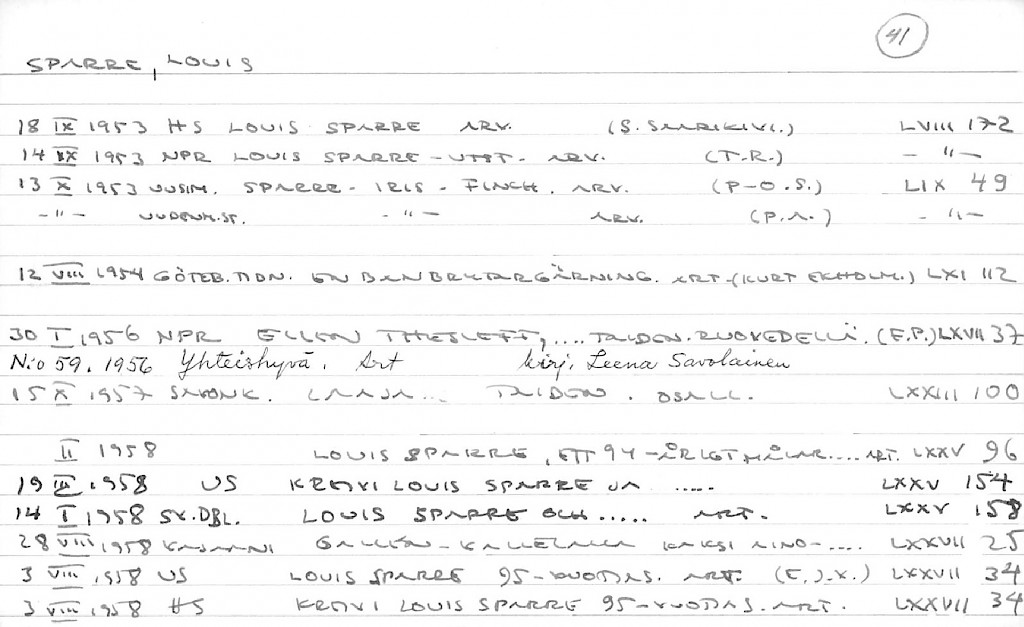 41
SPARRE, LOUIS
18 IX 1953 HS LOUIS SPARRE ARV. (S. SAARIKIVI.) LVIII 172
14 IX 1953 NPR LOUIS SPARRE - UTST. ARV. (T.R.) - " -
13 X 1953 UUSIM. SPARRE - IRIS - FINCH. ARV. (P-O.S.) LIX 49
- " - UUDENM.ST. - " - ARV. (P.A.) - " -
12 VIII 1954 GÖTEB.TIDN. EN BANBRYTARGÄRNING. ART. (KURT EKHOLM.) LXI 112
30 I 1956 NPR ELLEN THESLEFF, .... TAIDEN. RUOVEDELLÄ. (E.P.) LXVII 37
N:o 59. 1956 Yhteishyvä. Art kirj. Leena Savolainen
15 X 1957 SAVONK. LAAJA ... TAIDEN. OSALL. LXXIII 100
II 1958 LOUIS SPARRE, ETT 94-ÅRIGT MÅLAR.... ART. LXXV 96
19 III 1958 US KREIVI LOUIS SPARRE JA ..... LXXV 154
14 I 1958 SV.DBL. LOUIS SPARRE OCH ..... ART. LXXV 158
28 VIII 1958 KAJAANI GALLÉN-KALLELALLA KAKSI AINO-..... LXXVII 25
3 VIII 1958 US LOUIS SPARRE 95-VUOTIAS. ART. (E.J.V.) LXXVII 34
3 VIII 1958 HS KREIVI LOUIS SPARRE 95-VUOTIAS. ART. LXXVII 34